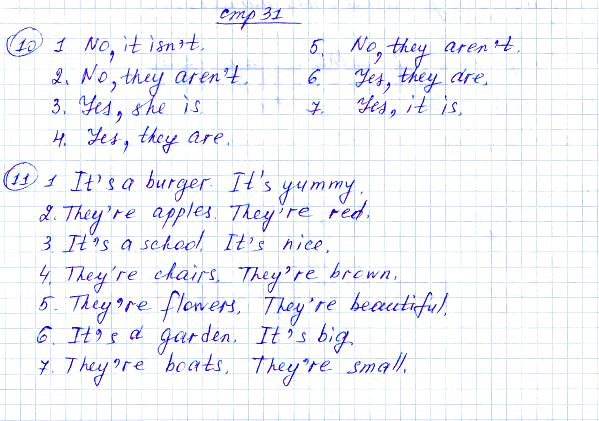 стр 31
10 1 No, it isn't. 5. No, they aren't.
2. No, they aren't. 6. Yes, they are.
3. Yes, she is 7. Yes, it is.
4. Yes, they are.
11 1 It's a burger. It's yummy.
2. They're apples. They're red.
3 It's a school. It's nice.
4. They're chairs. They're brown.
5. They're flowers. They're beautiful.
6. It's a garden. It's big.
7. They're boats. They're small.